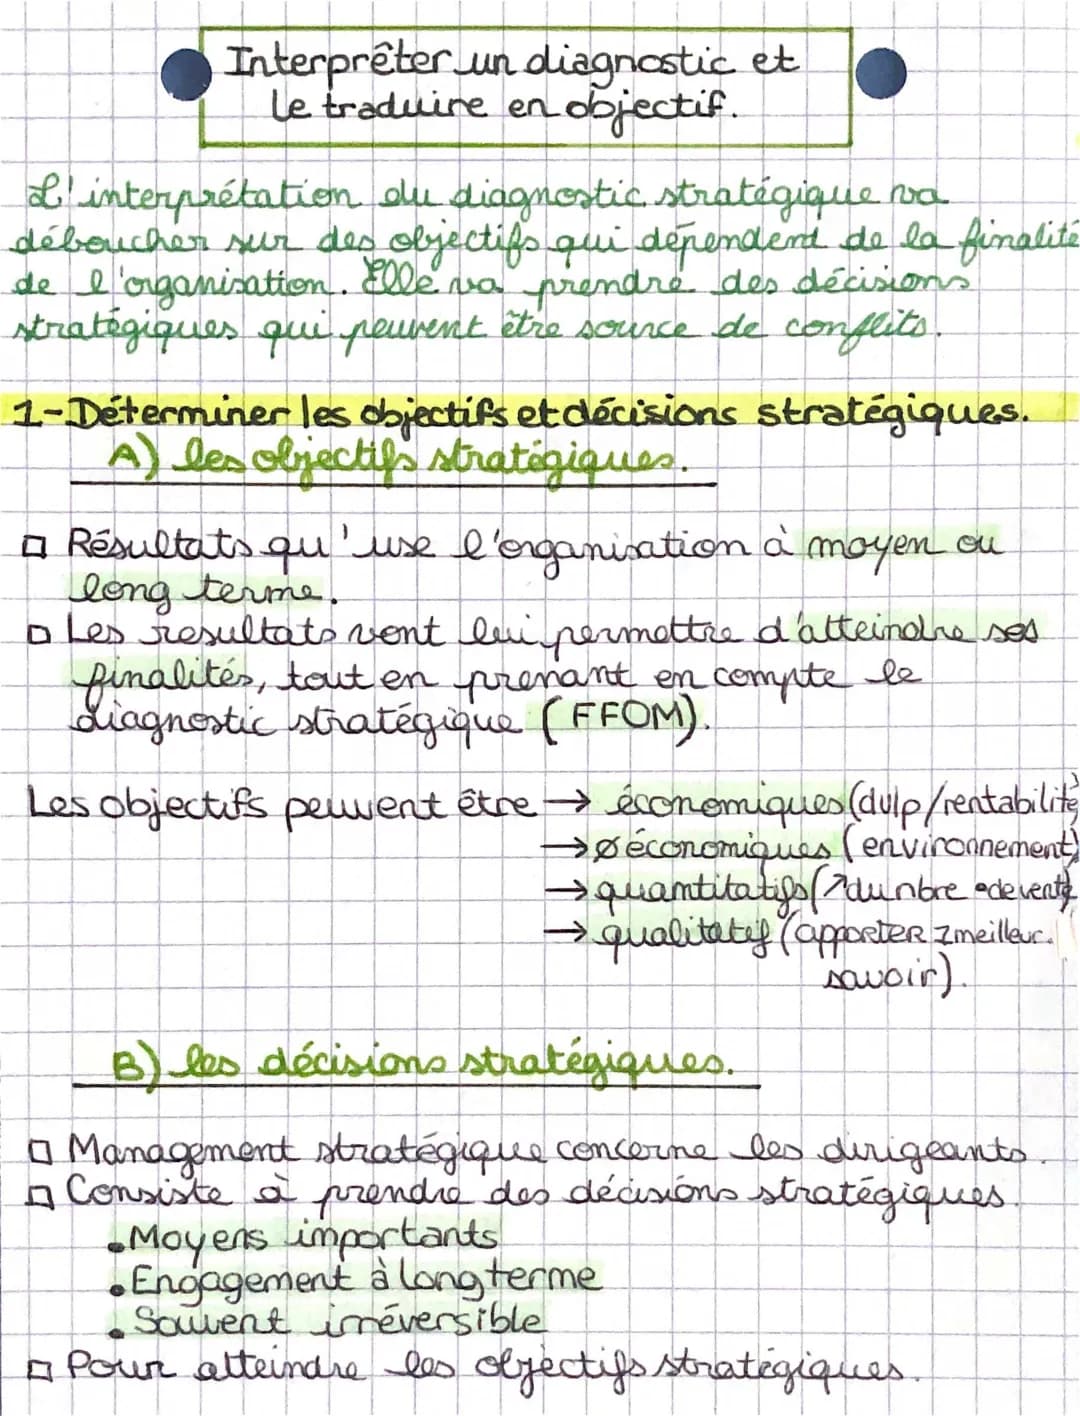 Interprêter un diagnostic et
le traduire en objectif.
L'interprétation du diagnostic stratégique va
déboucher sur des objectifs qui dépendent de la finalité
de l'organisation. Elle va prendre des décisions
stratégiques qui peuvent être source de conflits.
1-Déterminer les objectifs et décisions stratégiques.
A) les objectifs stratégiques.
□ Résultats qu'use l'organisation à moyen ou
long terme.
□ Les resultats vont lui permettre d'atteindre ses
finalités, tout en prenant en compte le
diagnostic stratégique (FFOM).
Les objectifs peuvent être → économiques (dulp/rentabilité)
→ Ø économiques (environnement)
→ quantitatifs (↗ du nbre de vente)
→ qualitatif (apporter 1 meilleur
savoir).
B) les décisions stratégiques.
□ Management stratégique concerne les dirigeants.
□ Consiste à prendre des décisions stratégiques.
• Moyens importants
• Engagement à long terme
• Souvent irréversible
□ Pour atteindre les objectifs stratégiques.